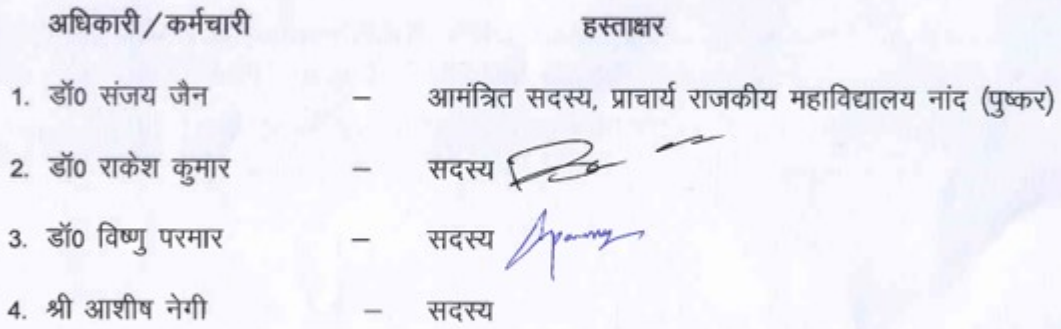 अधिकारी/कर्मचारी हस्ताक्षर
1. डॉ0 संजय जैन – आमंत्रित सदस्य, प्राचार्य राजकीय महाविद्यालय नांद (पुष्कर)
2. डॉ0 राकेश कुमार – सदस्य
3. डॉ0 विष्णु परमार – सदस्य
4. श्री आशीष नेगी – सदस्य